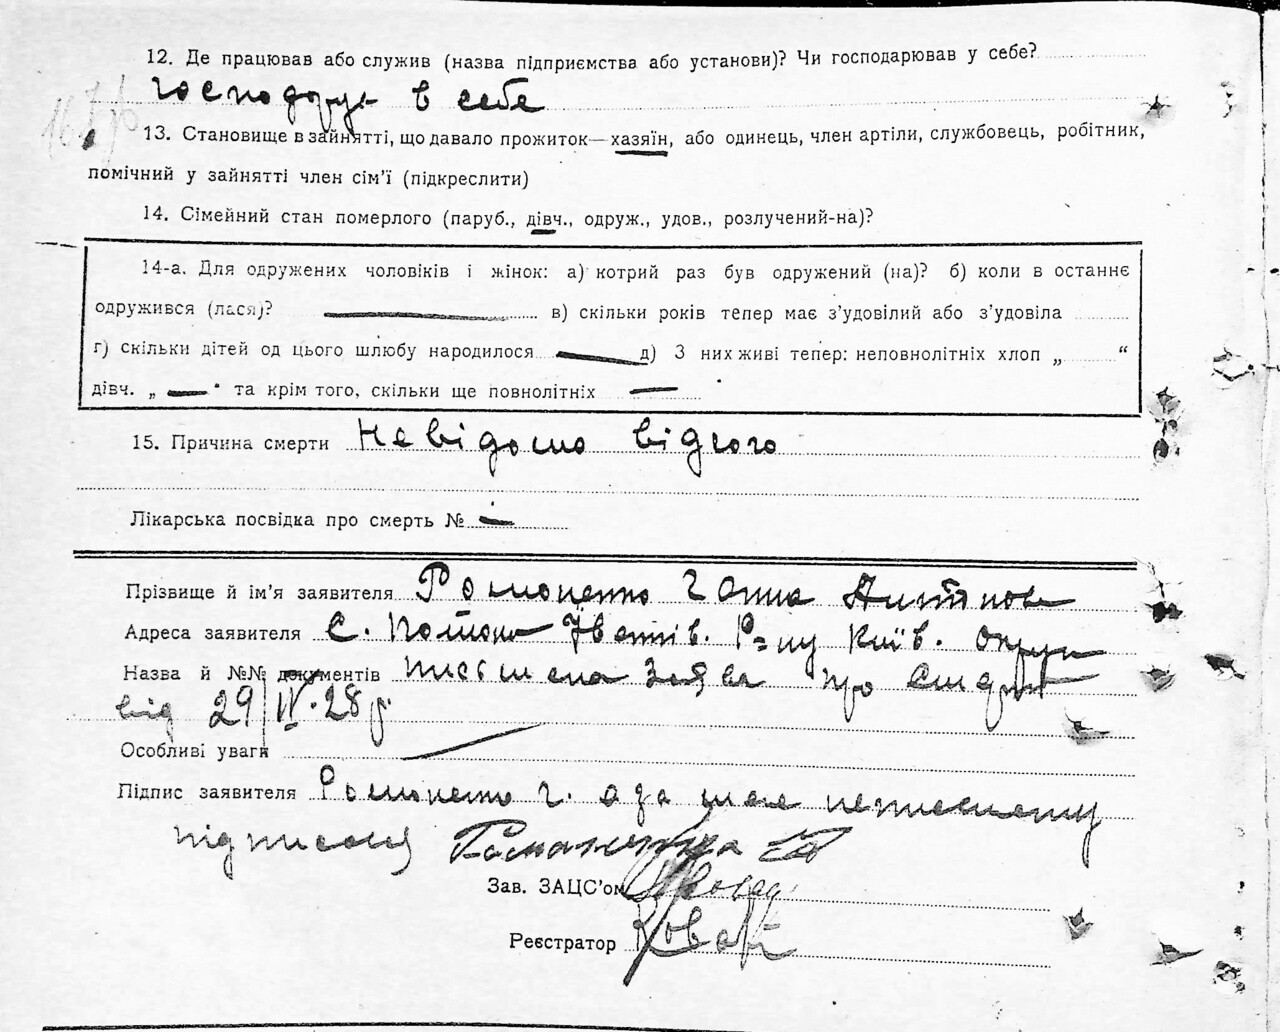 12. Де працював або служив (назва підприємства або установи)? Чи господарював у себе?
господарує в себе
13. Становище в зайнятті, що давало прожиток—хазяїн, або одинець, член артіли, службовець, робітник,
помічний у зайнятті член сім'ї (підкреслити)
14. Сімейний стан померлого (паруб., дівч., одруж., удов., розлучений-на)?
14-а. Для одружених чоловіків і жінок: а) котрий раз був одружений (на)? б) коли в останнє
одружився (лася)? в) скільки років тепер має з'удовілий або з'удовіла
г) скільки дітей од цього шлюбу народилося д) З них живі тепер: неповнолітніх хлоп „ “
дівч. „ — “ та крім того, скільки ще повнолітніх —
15. Причина смерти Невідомо від чого
Лікарська посвідка про смерть № —
Прізвище й ім'я заявителя Романенко Ганна
Адреса заявителя с. Р-ну Київ. Округи
Назва й №№ документів письмена заява про смерть
від 29/IV.28 р.
Особливі уваги
Підпис заявителя Романенко Г. а за нею неписьмену
підписався
Зав. ЗАЦС'ом
Реєстратор